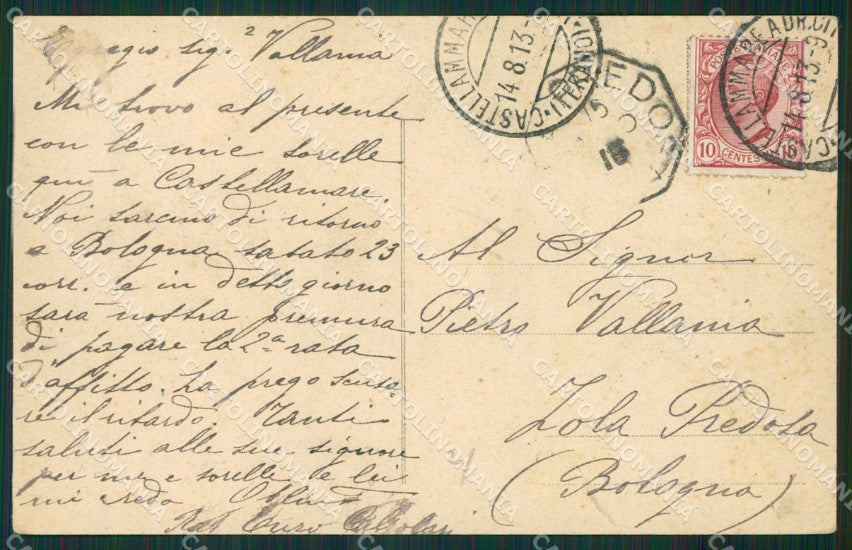 Egregio Sig. Vallania
Mi trovo al presente
con le mie sorelle
qui a Castellamare.
Noi saremo di ritorno
a Bologna sabato 23
corr. e in detto giorno
sarà nostra premura
di pagare la 2ª rata
d'affitto. La prego scusa-
re il ritardo. Tanti
saluti alle sue signore
per me e sorelle e lei
mi creda
Al Signor
Pietro Vallania
Zola Predosa
(Bologna)
CASTELLAMMARE
14.8.13
PREDOSA
15
CASTELLAMMARE ADR.
14.8.13
10
CENTES
CARTOLINOMANIA